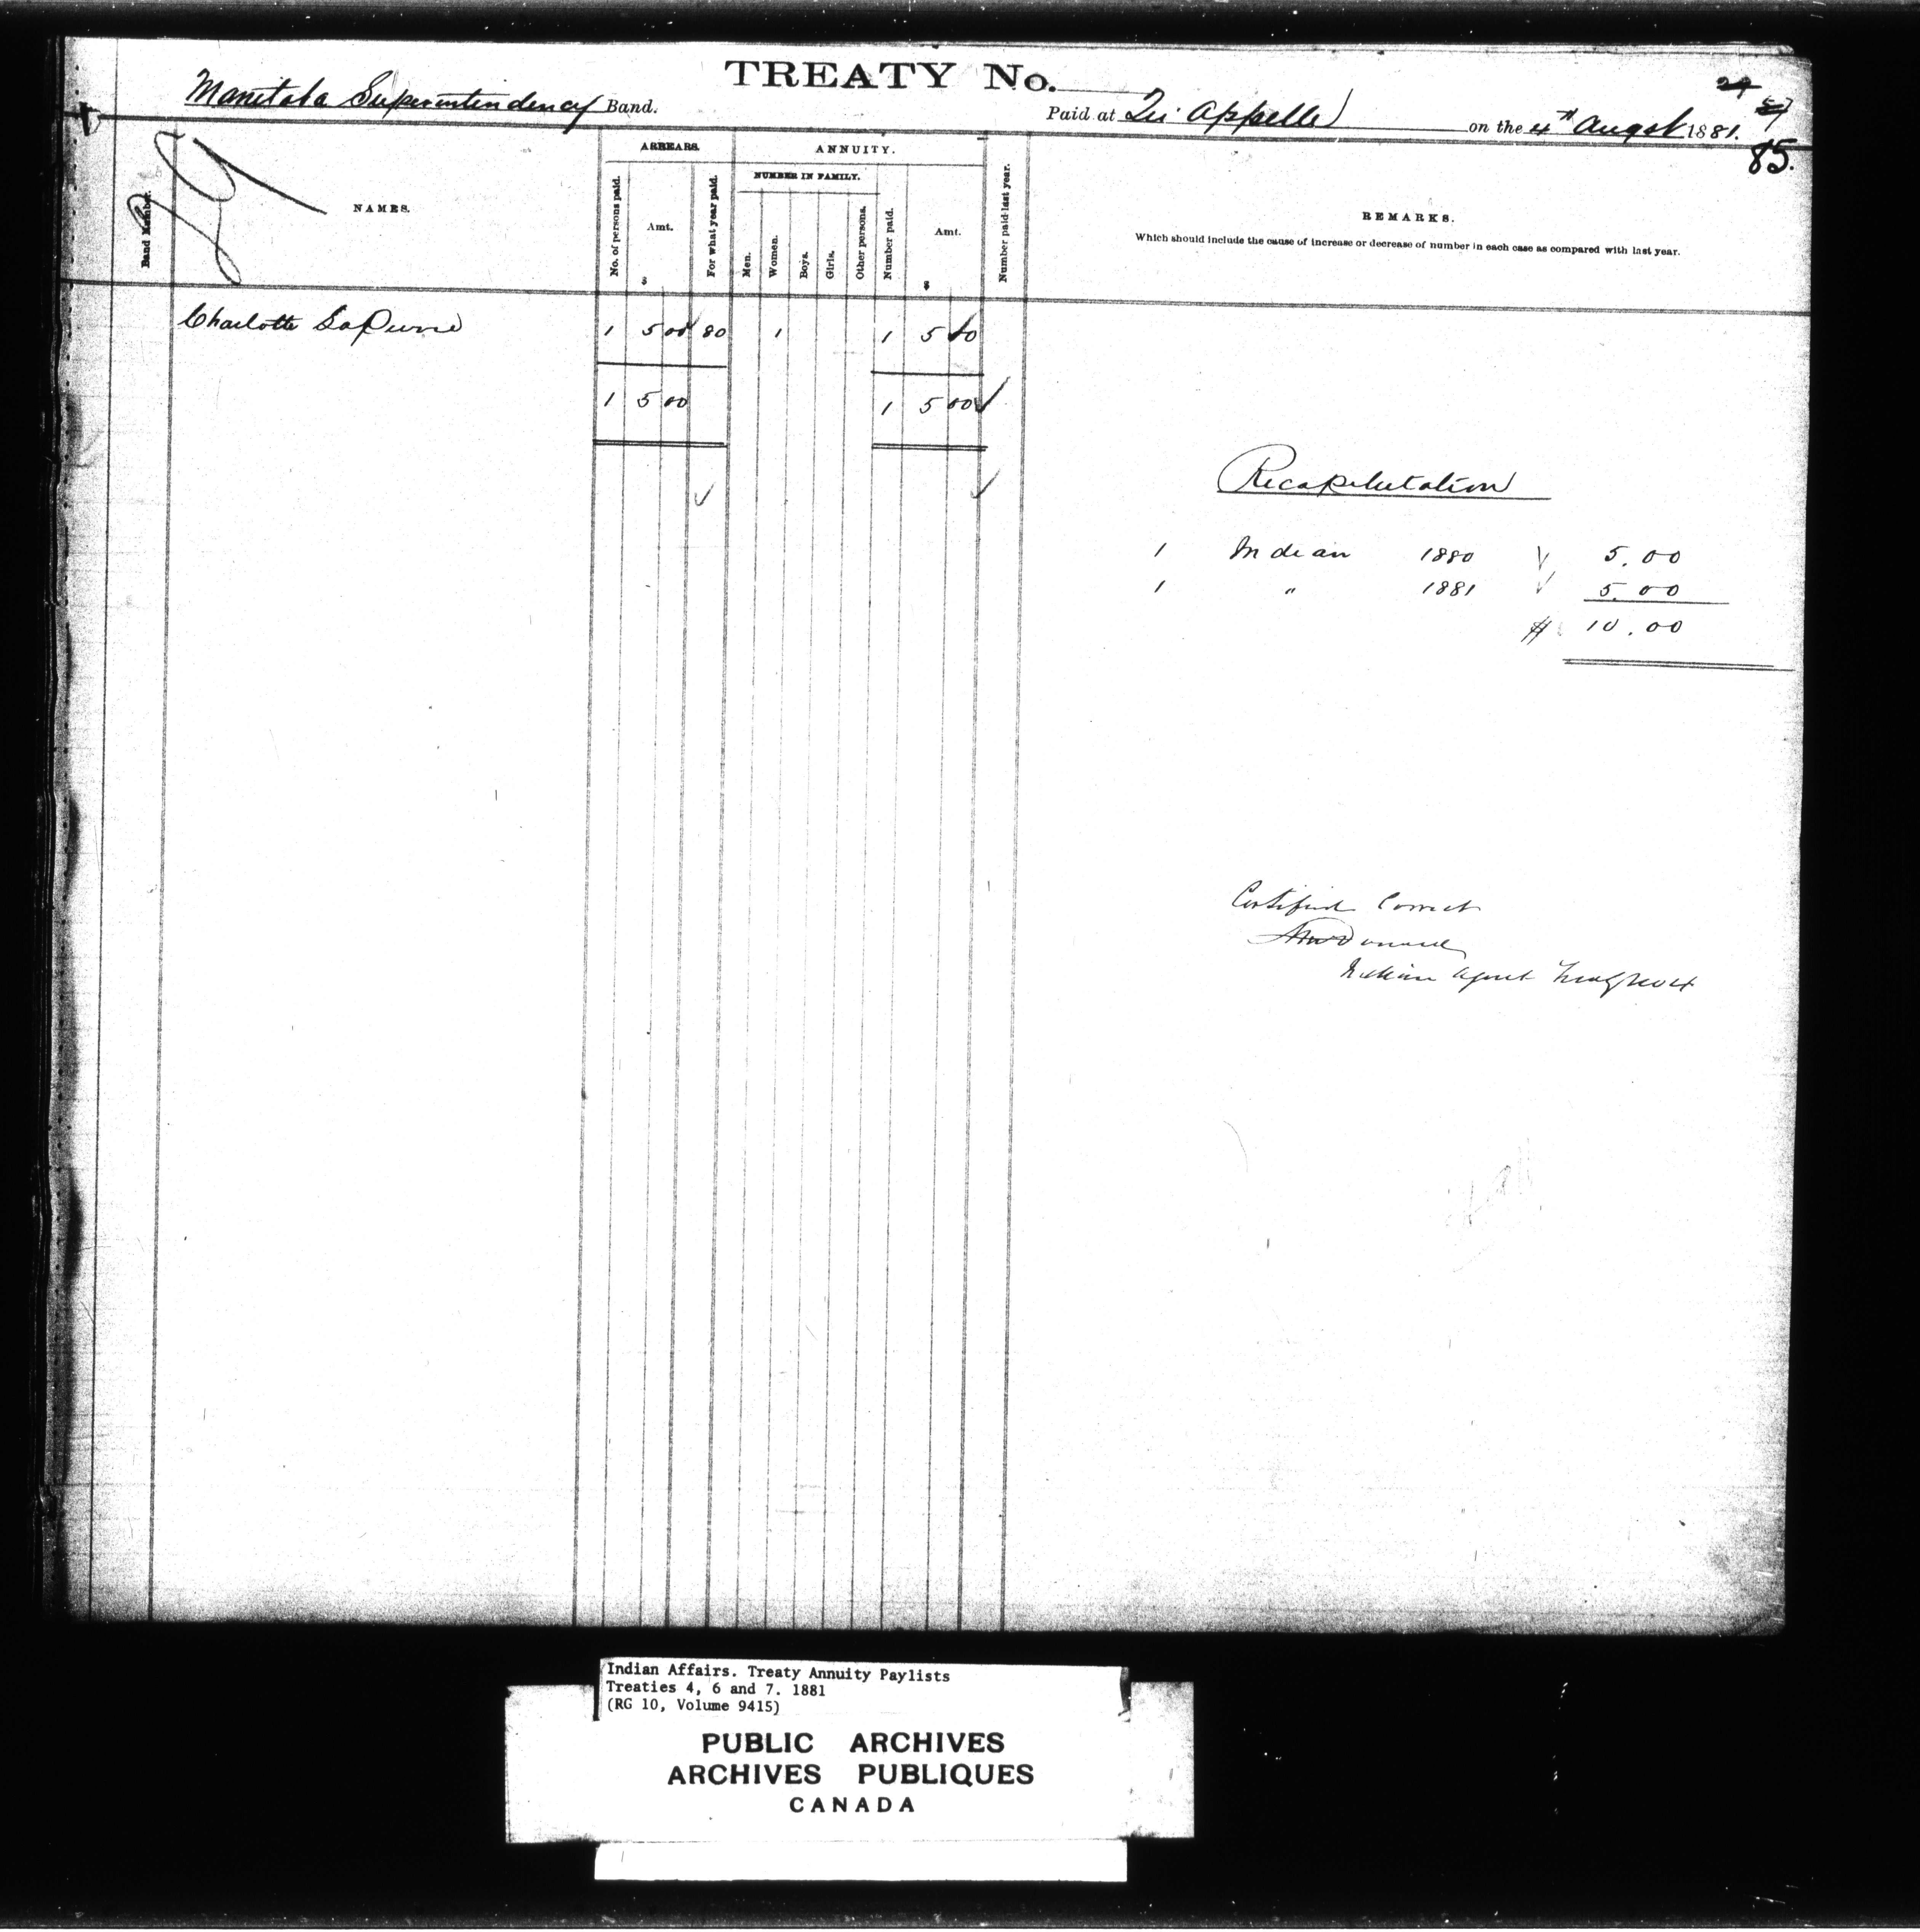 TREATY No.
Manitoba Superintendency Band.
Paid at Qu'Appelle on the 4th Augst 1881.
24
57
85.
29
Band Number.
NAMES.
ARREARS.
No. of persons paid.
Amt.
$
For what year paid.
ANNUITY.
NUMBER IN FAMILY.
Men.
Women.
Boys.
Girls.
Other persons.
Number paid.
Amt.
$
Number paid last year.
REMARKS.
Which should include the cause of increase or decrease of number in each case as compared with last year.
Charlotte LaPierre 1 5 00 80 1 1 5 00
1 5 00 1 5 00
Recapitulation
1 Indian 1880 5.00
1 " 1881 5.00
$ 10.00
Certified Correct
A McDonald
Indian Agent Treaty No 4
Indian Affairs. Treaty Annuity Paylists
Treaties 4, 6 and 7. 1881
(RG 10, Volume 9415)
PUBLIC ARCHIVES
ARCHIVES PUBLIQUES
CANADA